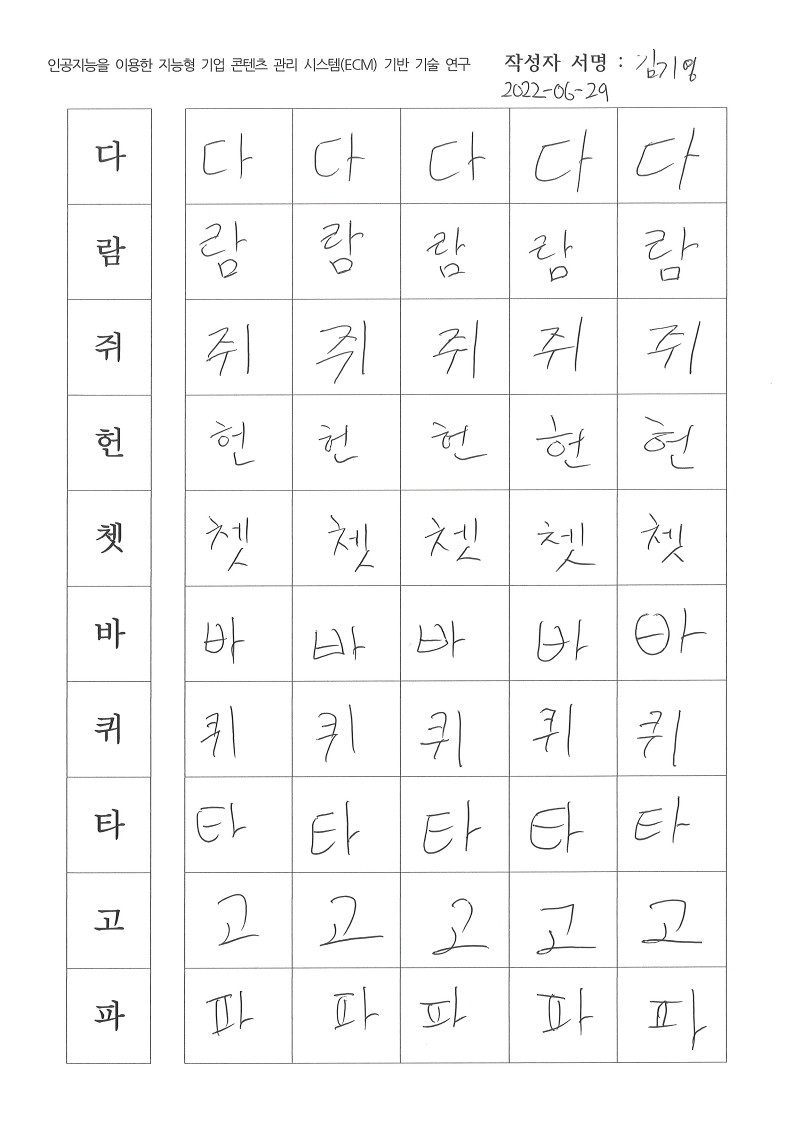 인공지능을 이용한 지능형 기업 콘텐츠 관리 시스템(ECM) 기반 기술 연구 작성자 서명 : 김기영
2022-06-29
다 다 다 다 다 다
람 람 람 람 람 람
쥐 쥐 쥐 쥐 쥐 쥐
헌 헌 헌 헌 헌 헌
쳇 쳇 쳇 쳇 쳇 쳇
바 바 바 바 바 바
퀴 퀴 퀴 퀴 퀴 퀴
타 타 타 타 타 타
고 고 고 고 고 고
파 파 파 파 파 파